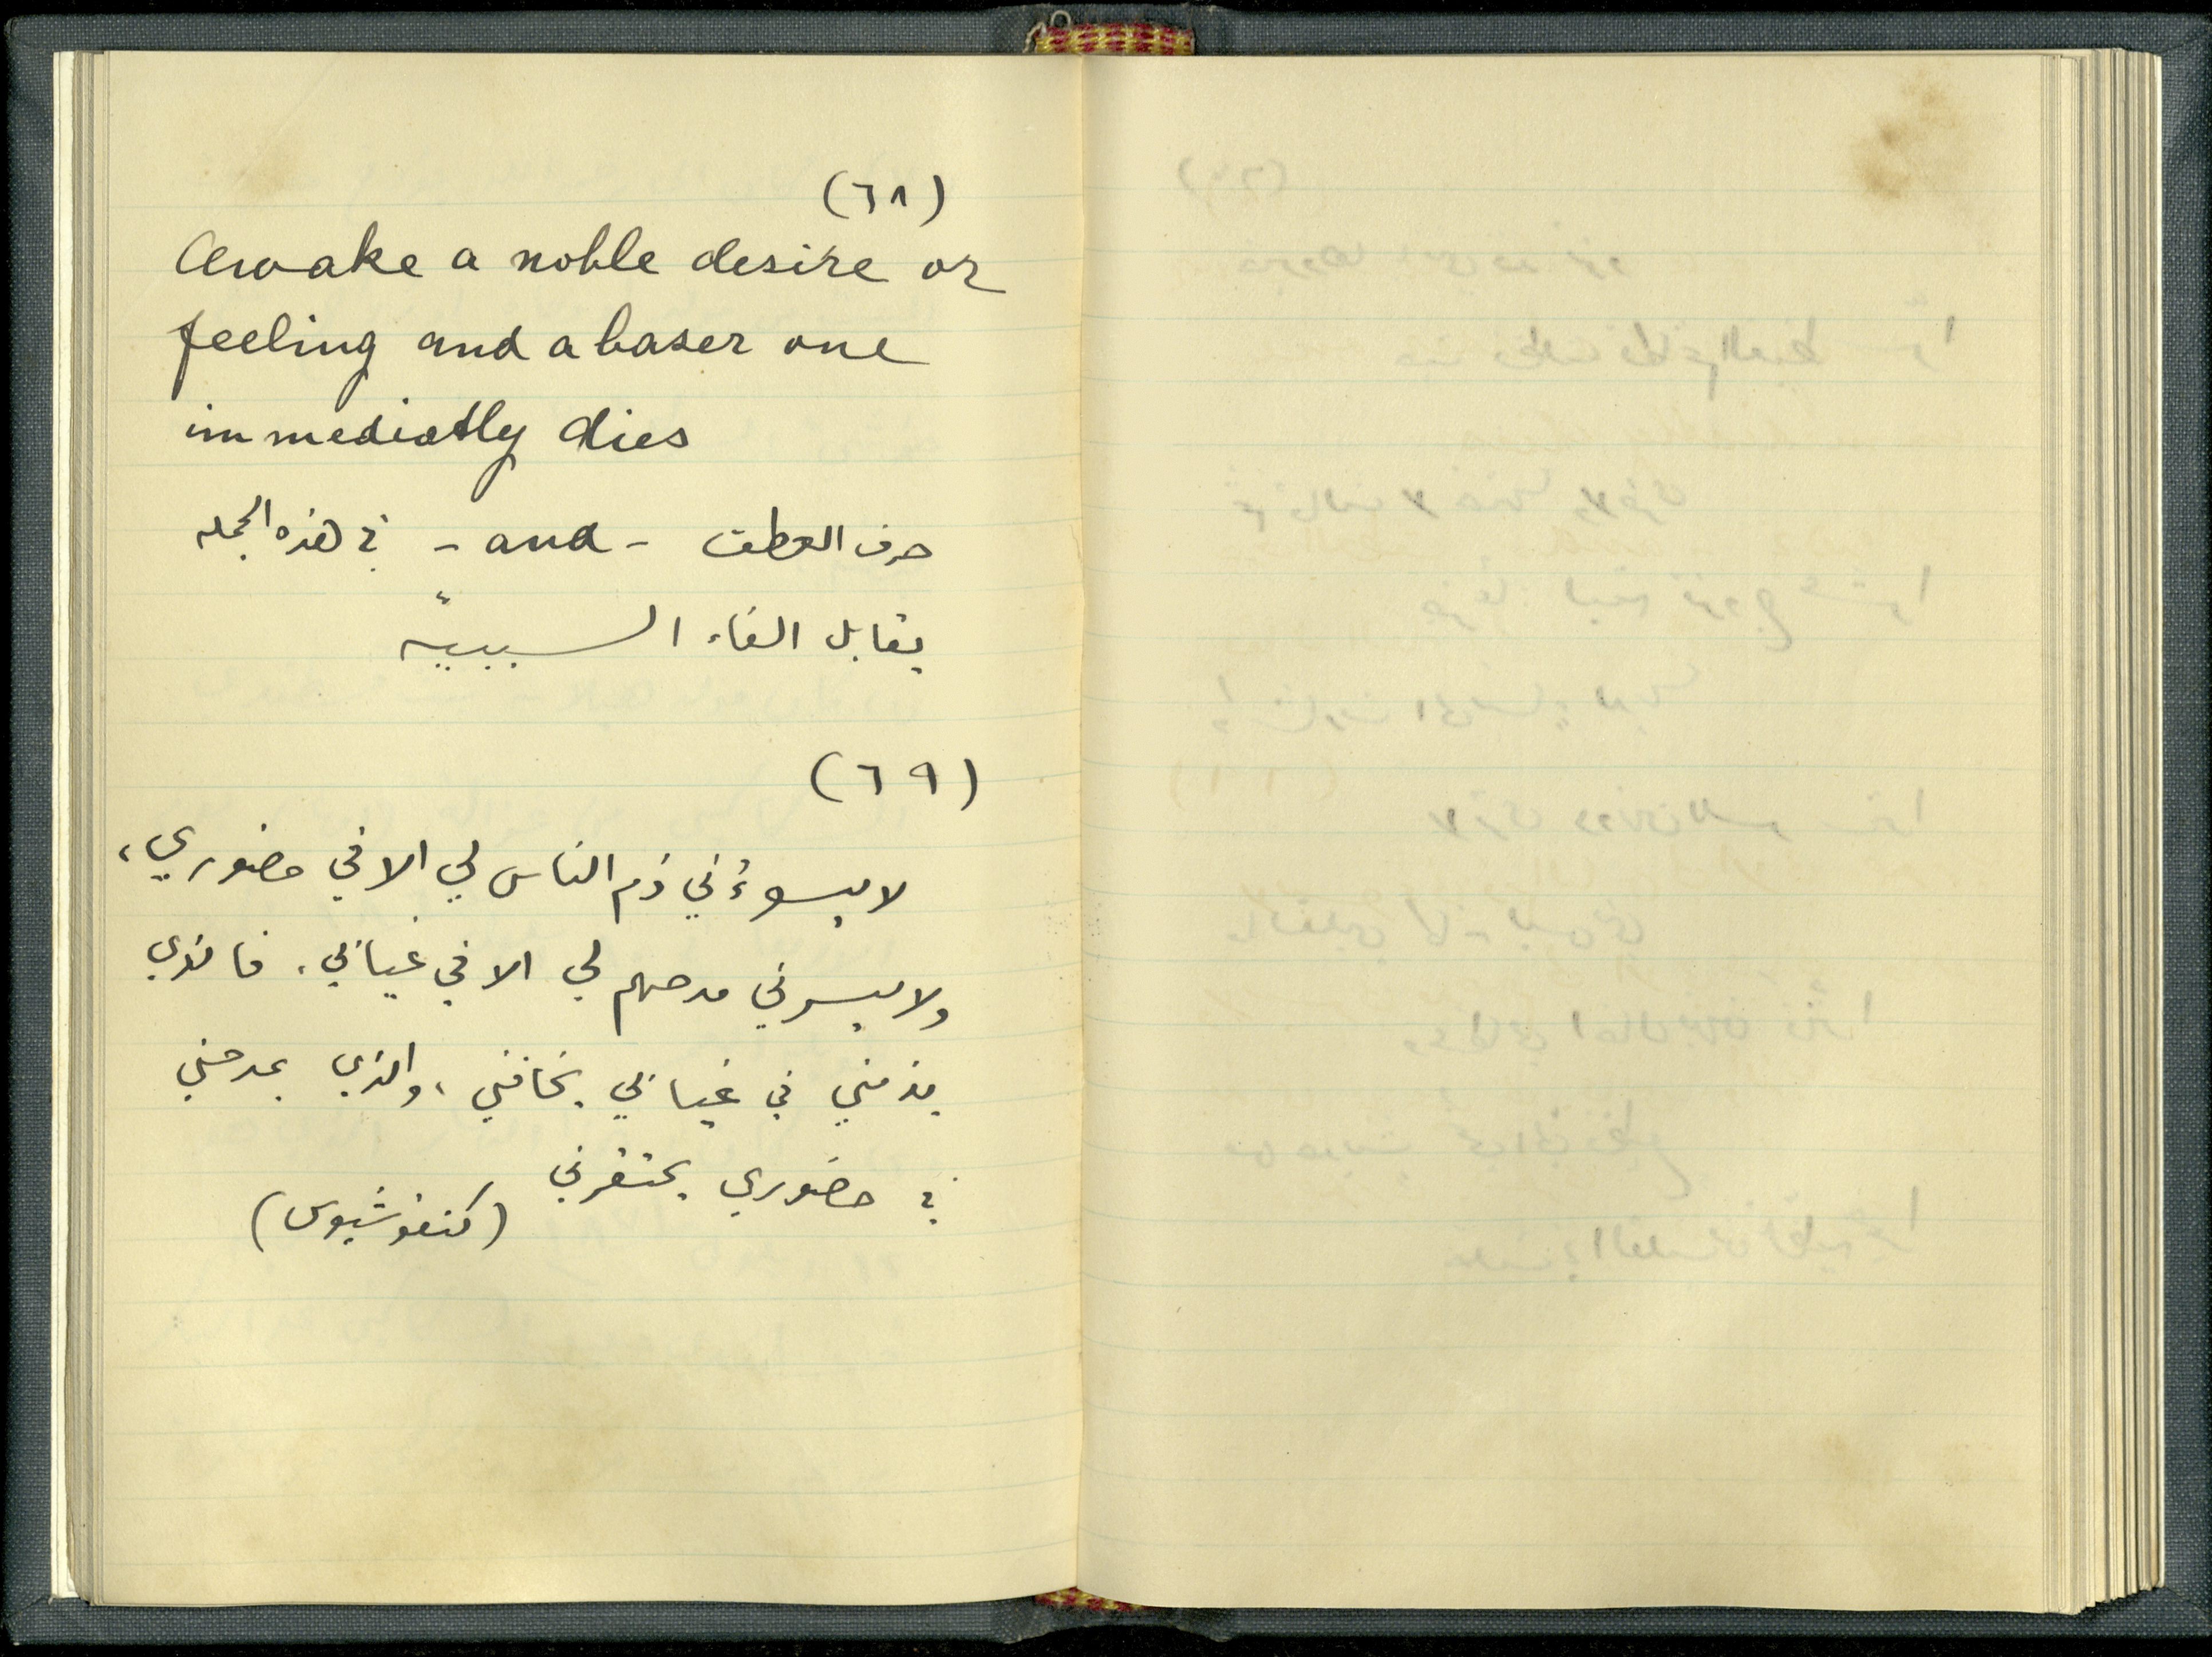 (٦٨)
Awake a noble desire or
feeling and a baser one
immediatly dies
حرف العطف - and - في هذه الجمله
يقابل الفاء السببيّه
(٦٩)
لا يسوءُني ذم الناس لي الا في حضوري،
ولا يسرني مدحهم لي الا في غيابي، فالذي
يذمني في غيابي يخافني، والذي يمدحني
في حضوري يحتقرني
(كنفوشيوس)